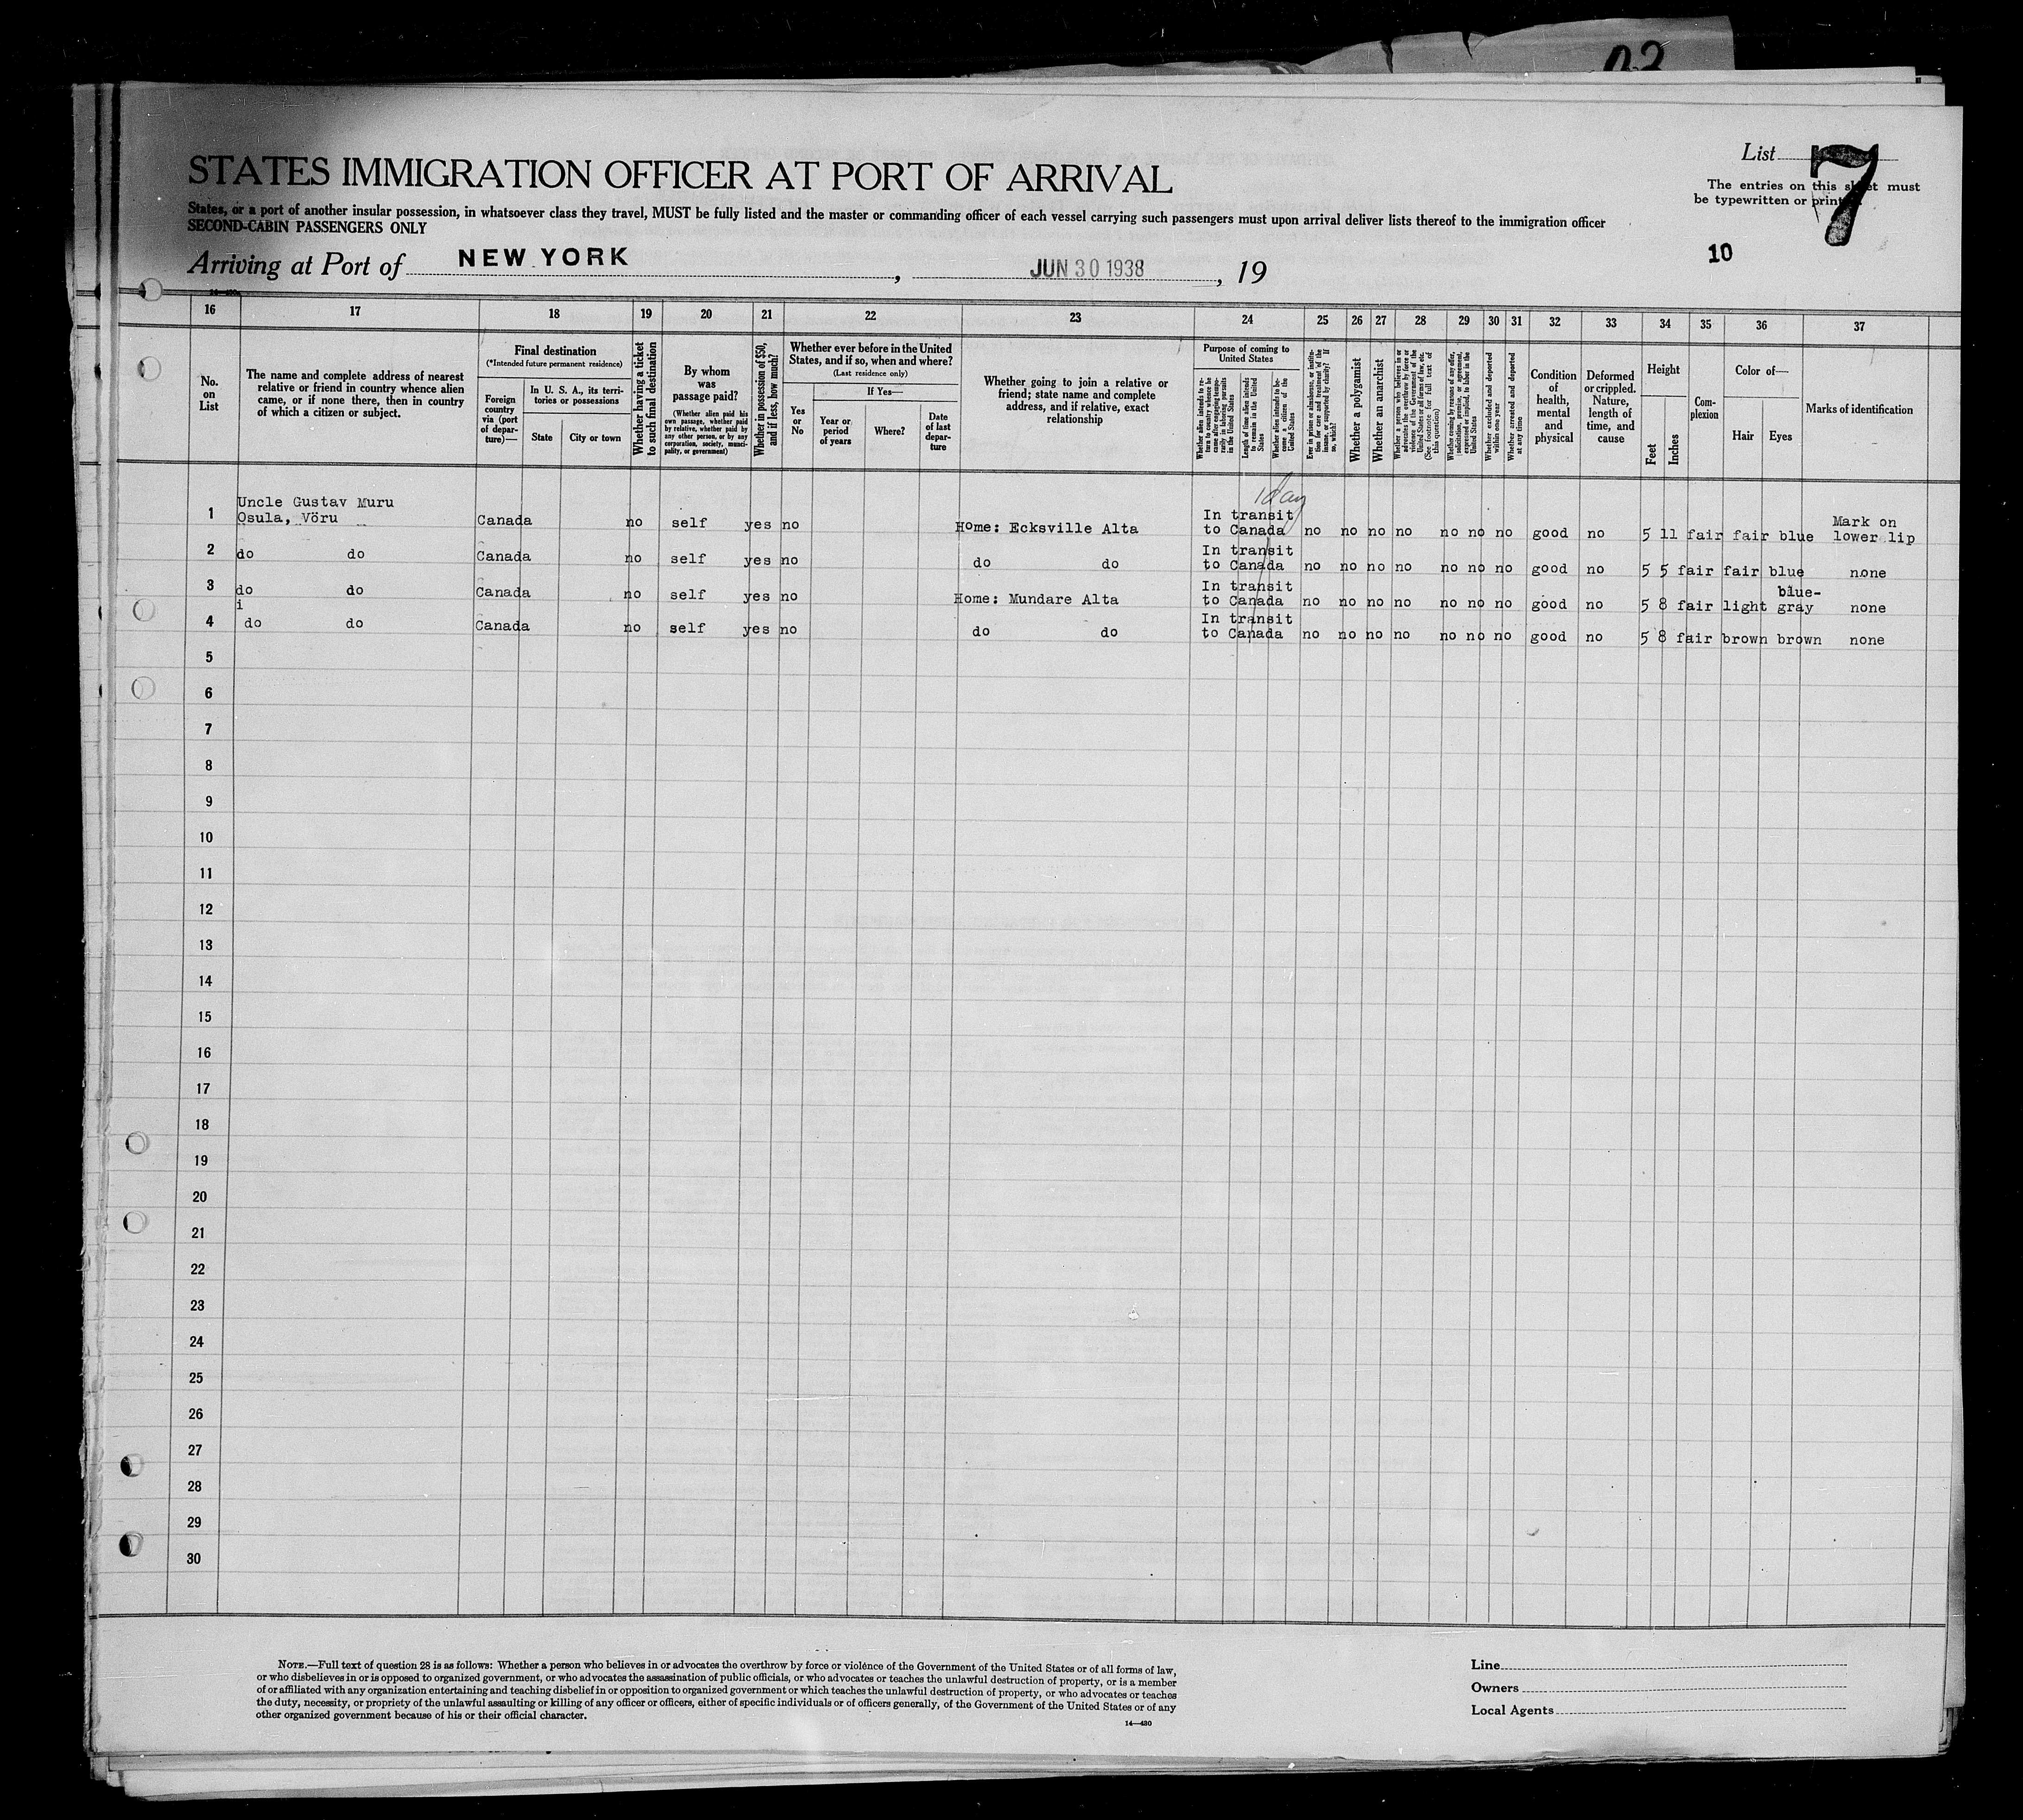 03
STATES IMMIGRATION OFFICER AT PORT OF ARRIVAL
States, or a port of another insular possession, in whatsoever class they travel, MUST be fully listed and the master or commanding officer of each vessel carrying such passengers must upon arrival deliver lists thereof to the immigration officer
SECOND-CABIN PASSENGERS ONLY
List 7
The entries on this sheet must
be typewritten or printed
10
Arriving at Port of NEW YORK, JUN 30 1938, 19
16 17 18 19 20 21 22 23 24 25 26 27 28 29 30 31 32 33 34 35 36 37
No. on List
The name and complete address of nearest
relative or friend in country whence alien
came, or if none there, then in country
of which a citizen or subject.
Final destination
(*Intended future permanent residence)
Foreign country via (port of departure)—
In U. S. A., its territories or possessions
State
City or town
Whether having a ticket to such final destination
By whom was passage paid?
(Whether alien paid his own passage, whether paid by relative, whether paid by any other person, or by any corporation, society, municipality, or government)
Whether in possession of $50, and if less, how much?
Whether ever before in the United
States, and if so, when and where?
(Last residence only)
Yes or No
If Yes—
Year or period of years
Where?
Date of last departure
Whether going to join a relative or
friend; state name and complete
address, and if relative, exact
relationship
Purpose of coming to United States
Whether alien intends to return to country whence he came after engaging temporarily in laboring pursuits in the United States
Length of time alien intends to remain in the United States
Whether alien intends to become a citizen of the United States
Ever in prison or almshouse, or institution for care and treatment of the insane, or supported by charity? If so, which?
Whether a polygamist
Whether an anarchist
Whether a person who believes in or advocates the overthrow by force or violence of the Government of the United States or all forms of law, etc. (See footnote for full text of this question)
Whether coming by reason of any offer, solicitation, promise, or agreement, expressed or implied, to labor in the United States
Whether excluded and deported within one year
Whether arrested and deported at any time
Condition of health, mental and physical
Deformed or crippled. Nature, length of time, and cause
Height
Feet
Inches
Complexion
Color of—
Hair
Eyes
Marks of identification
1 day
1 Uncle Gustav Muru
Osula, Võru Canada no self yes no Home: Ecksville Alta In transit to Canada no no no no no no no good no 5 11 fair fair blue Mark on lower lip
2 do do Canada no self yes no do do In transit to Canada no no no no no no no good no 5 5 fair fair blue none
3 do do Canada no self yes no Home: Mundare Alta In transit to Canada no no no no no no no good no 5 8 fair light blue-gray none
i
4 do do Canada no self yes no do do In transit to Canada no no no no no no no good no 5 8 fair brown brown none
5
6
7
8
9
10
11
12
13
14
15
16
17
18
19
20
21
22
23
24
25
26
27
28
29
30
NOTE.—Full text of question 28 is as follows: Whether a person who believes in or advocates the overthrow by force or violence of the Government of the United States or of all forms of law,
or who disbelieves in or is opposed to organized government, or who advocates the assassination of public officials, or who advocates or teaches the unlawful destruction of property, or is a member
of or affiliated with any organization entertaining and teaching disbelief in or opposition to organized government or which teaches the unlawful destruction of property, or who advocates or teaches
the duty, necessity, or propriety of the unlawful assaulting or killing of any officer or officers, either of specific individuals or of officers generally, of the Government of the United States or of any
other organized government because of his or their official character.
14—430
Line
Owners
Local Agents